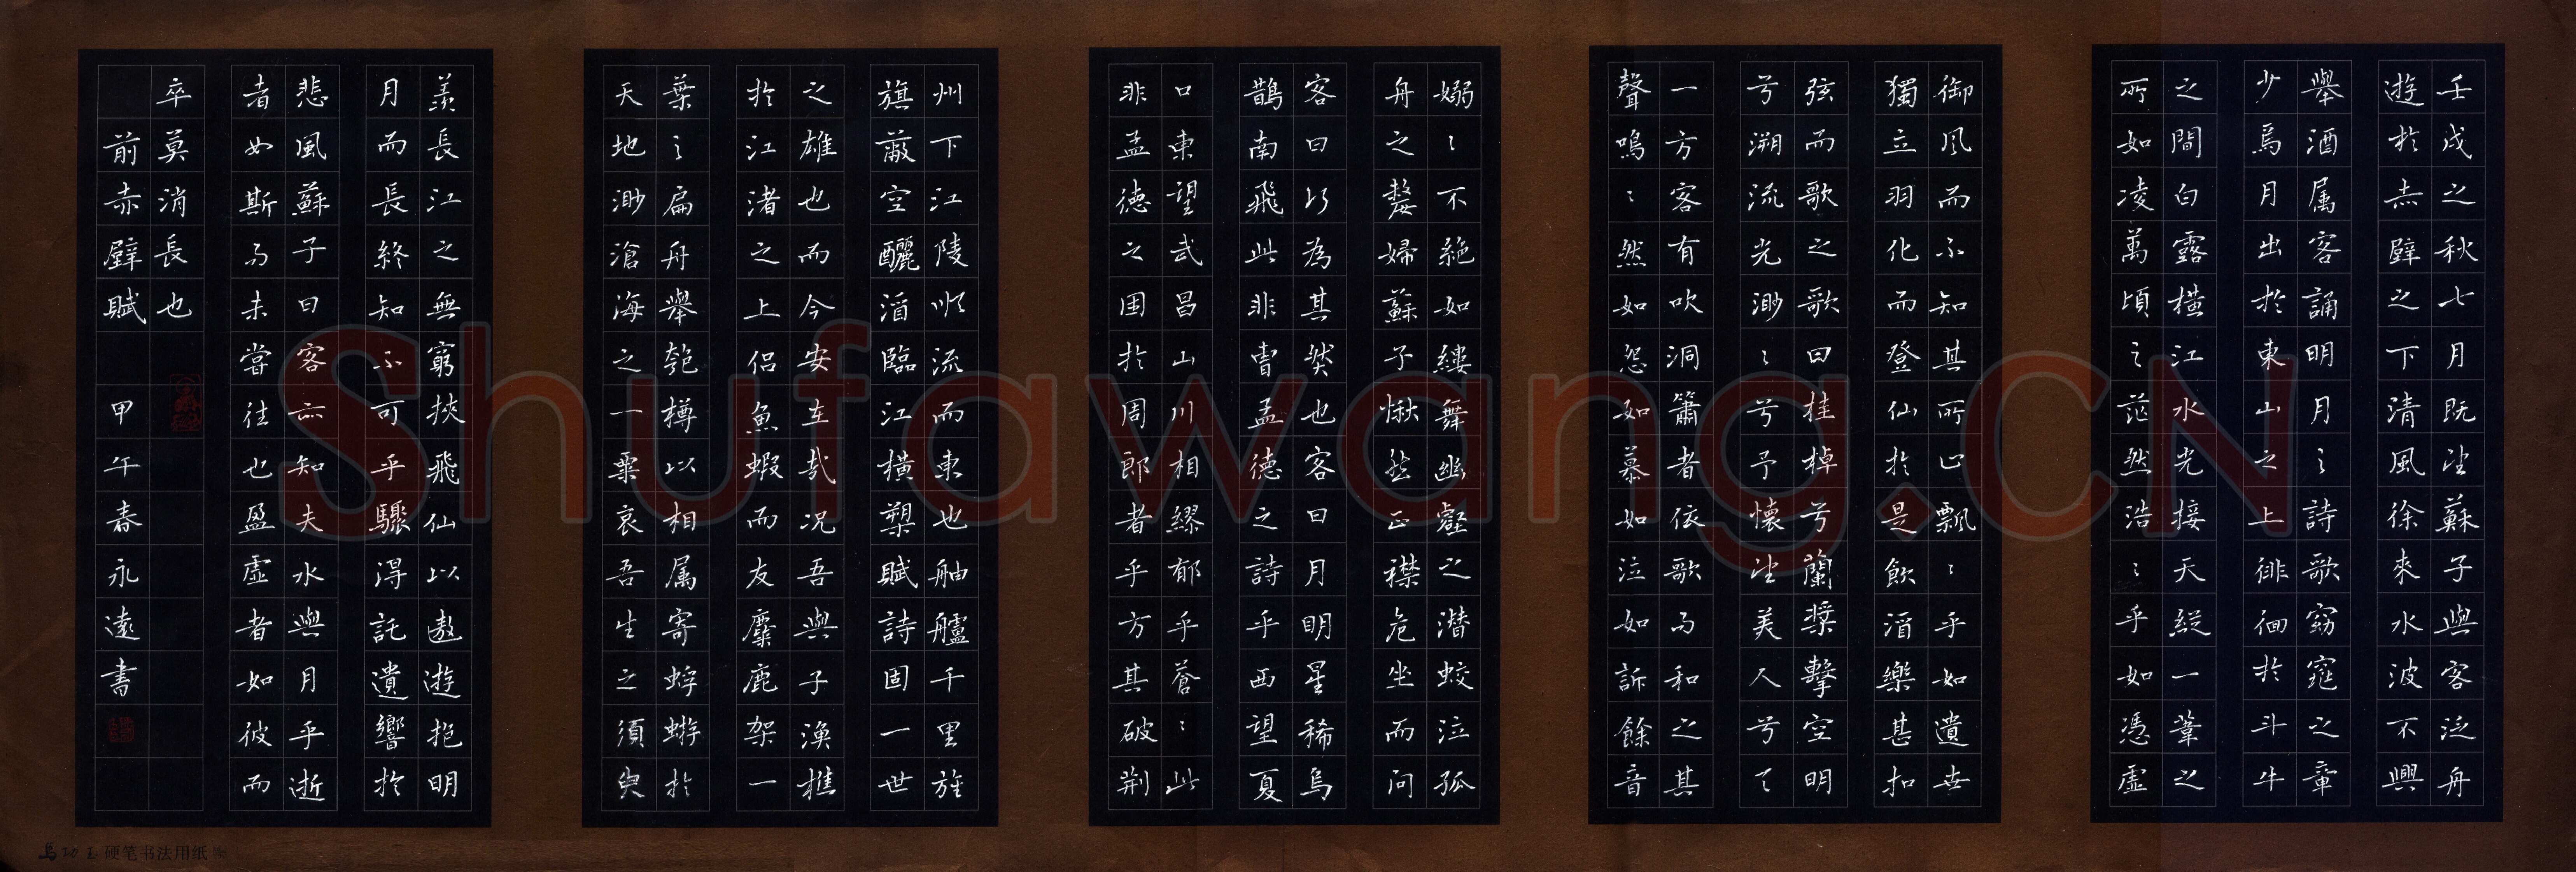 壬戌之秋七月既望蘇子與客泛舟
遊於赤壁之下清風徐來水波不興
舉酒属客誦明月之詩歌窈窕之章
少焉月出於東山之上徘徊於斗牛
之間白露橫江水光接天縱一葦之
所如凌萬頃之茫然浩〻乎如憑虛
御風而不知其所止飄〻乎如遺世
獨立羽化而登仙於是飲酒樂甚扣
弦而歌之歌曰桂棹兮蘭槳擊空明
兮溯流光渺〻兮予懷望美人兮天
一方客有吹洞簫者依歌而和之其
聲嗚〻然如怨如慕如泣如訴餘音
嫋〻不絕如縷舞幽壑之潛蛟泣孤
舟之嫠婦蘇子愀然正襟危坐而問
客曰何為其然也客曰月明星稀烏
鵲南飛此非曹孟德之詩乎西望夏
口東望武昌山川相繆郁乎蒼〻此
非孟德之困於周郎者乎方其破荊
州下江陵順流而東也舳艫千里旌
旗蔽空釃酒臨江橫槊賦詩固一世
之雄也而今安在哉況吾與子漁樵
於江渚之上侶魚蝦而友麋鹿架一
葉之扁舟舉匏樽以相属寄蜉蝣於
天地渺滄海之一粟哀吾生之須臾
羨長江之無窮挾飛仙以遨遊抱明
月而長終知不可乎驟得託遺響於
悲風蘇子曰客亦知夫水與月乎逝
者如斯而未嘗往也盈虛者如彼而
卒莫消長也
前赤壁賦 甲午春永遠書
硬笔书法用纸
Shufawang.CN